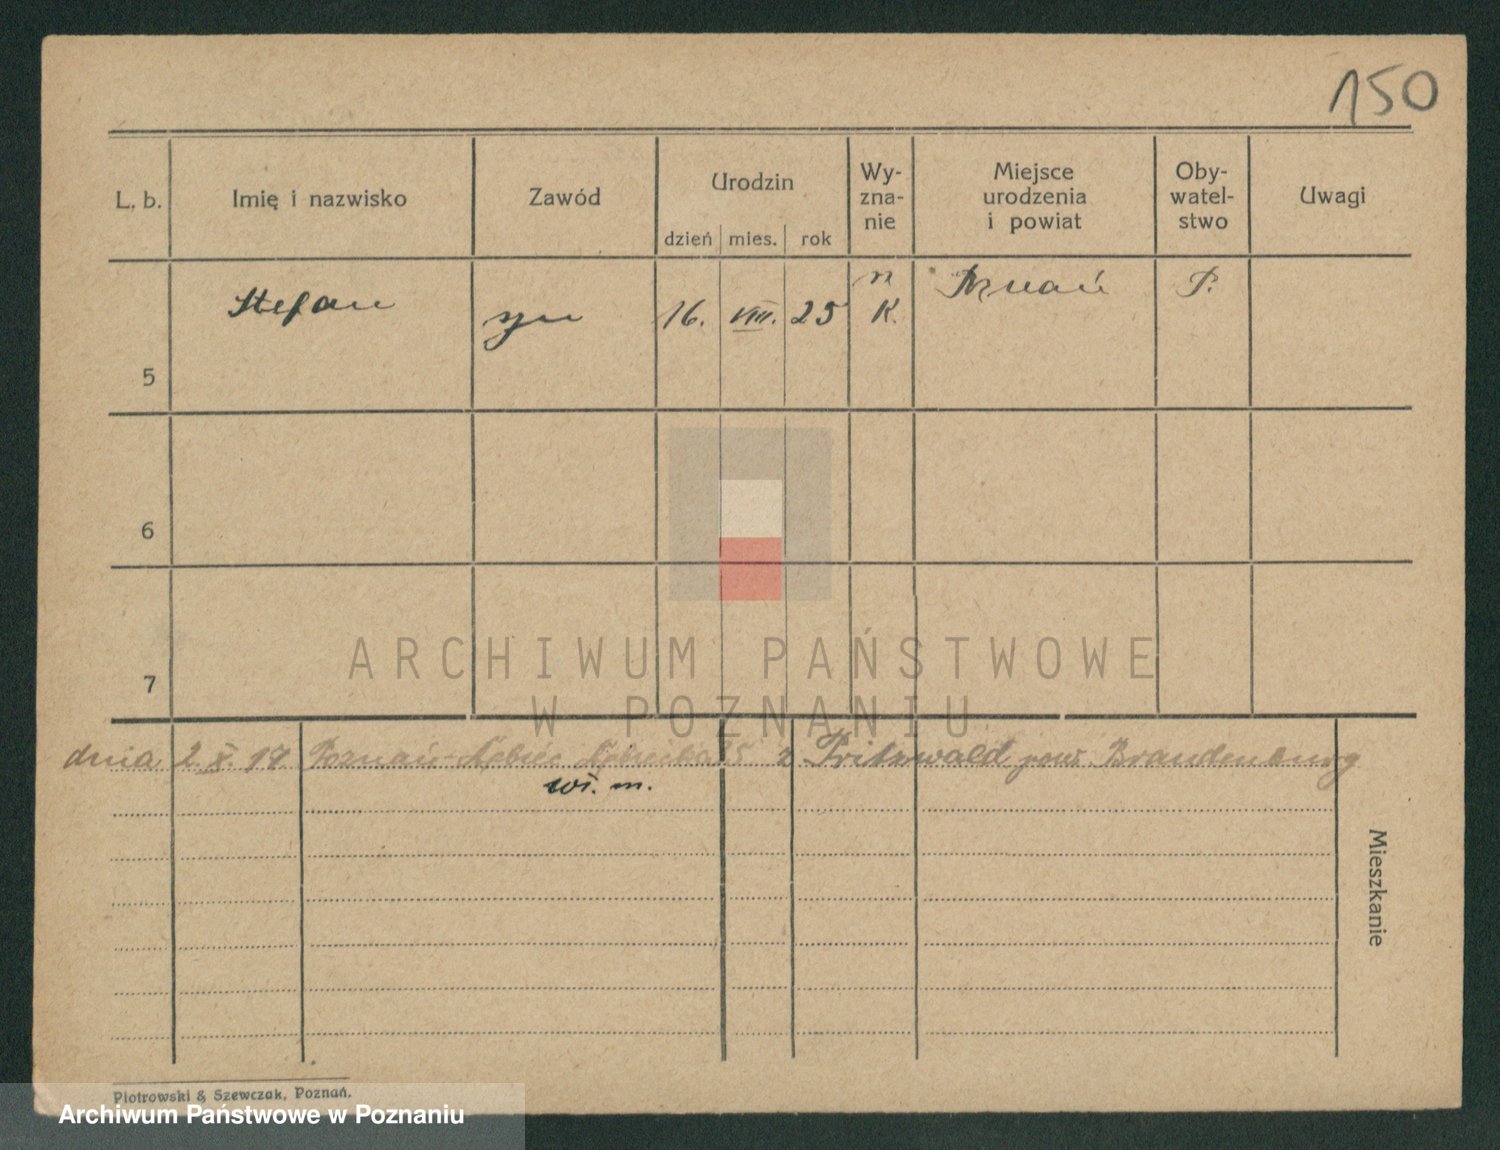 150
L. b. Imię i nazwisko Zawód Urodzin dzień mies. rok Wy-zna-nie Miejsce urodzenia i powiat Oby-watel-stwo Uwagi
n
Stefan syn 16. VIII. 25 K. Poznań P.
5
6
ARCHIWUM PAŃSTWOWE
7
W POZNANIU
dnia 2. X. 17 Poznań-Dębiec z Pritzwald pow. Brandenburg
wł. m.
Mieszkanie
Piotrowski & Szewczak, Poznań.
Archiwum Państwowe w Poznaniu